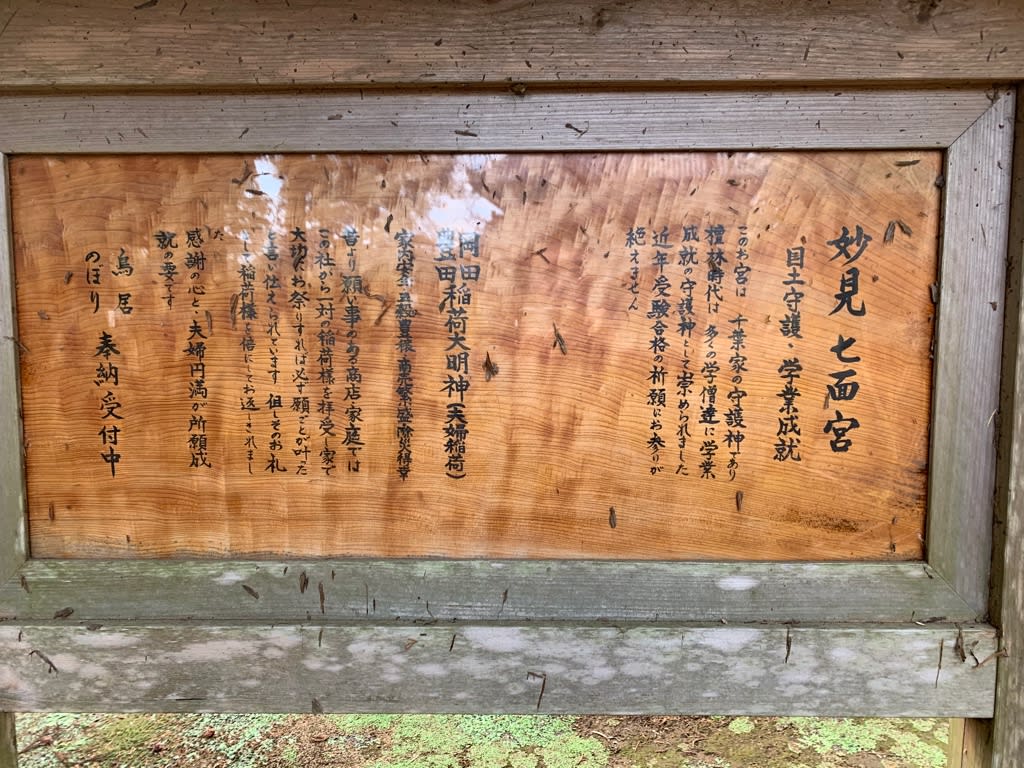 妙見 七面宮
国土守護・学業成就
このお宮は 千葉家の守護神であり
檀林時代は 多くの学僧達に学業
成就の守護神として崇められました
近年受験合格の祈願にお参りが
絶えません
岡田稲荷大明神(夫婦稲荷)
豊田
家内安全五穀豊穣
昔より願い事のある商店・家庭では
この社から一対の稲荷様を拝受し家で
大切にお祭りすれば必ず願ごとが叶った
と言い仕えられています 但しそのお札
として稲荷様を倍にしてお返しされまし
た
感謝の心と、夫婦円満が所願成
就の要です
鳥居
のぼり 奉納受付中